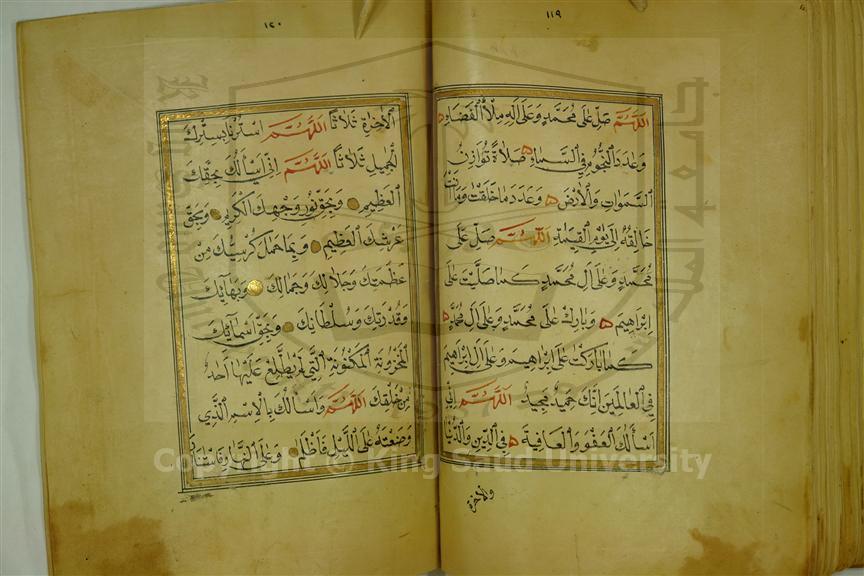 ١١٩
اللهم صل على محمد وعلى اله ملا الفضاء
وعدد النجوم في السماء صلاة توازن
السموات والارض وعدد ما خلقت وما انت
خالقه الى يوم القيمة اللهم صل على
محمد وعلى ال محمد كما صليت على
ابراهيم وبارك على محمد وعلى ال محمد
كما باركت على ابراهيم وعلى ال ابراهيم
في العالمين انك حميد مجيد اللهم اني
اسألك العفو والعافية في الدين والدنيا
والاخرة
١٢٠
الاخرة ثلاثا اللهم استرنا بسترك
الجميل ثلاثا اللهم اني اسألك بحقك
العظيم وبحق نور وجهك الكريم وبحق
عرشك العظيم وبما حمل كرسيك من
عظمتك وجلالك وجمالك وبهائك
وقدرتك وسلطانك وبحق اسمائك
المخزونة المكنونة التي لم يطلع عليها احد
من خلقك اللهم واسألك بالاسم الذي
وضعته على الليل فاظلم وعلى النهار فاستنار
Copyright © King Saud University